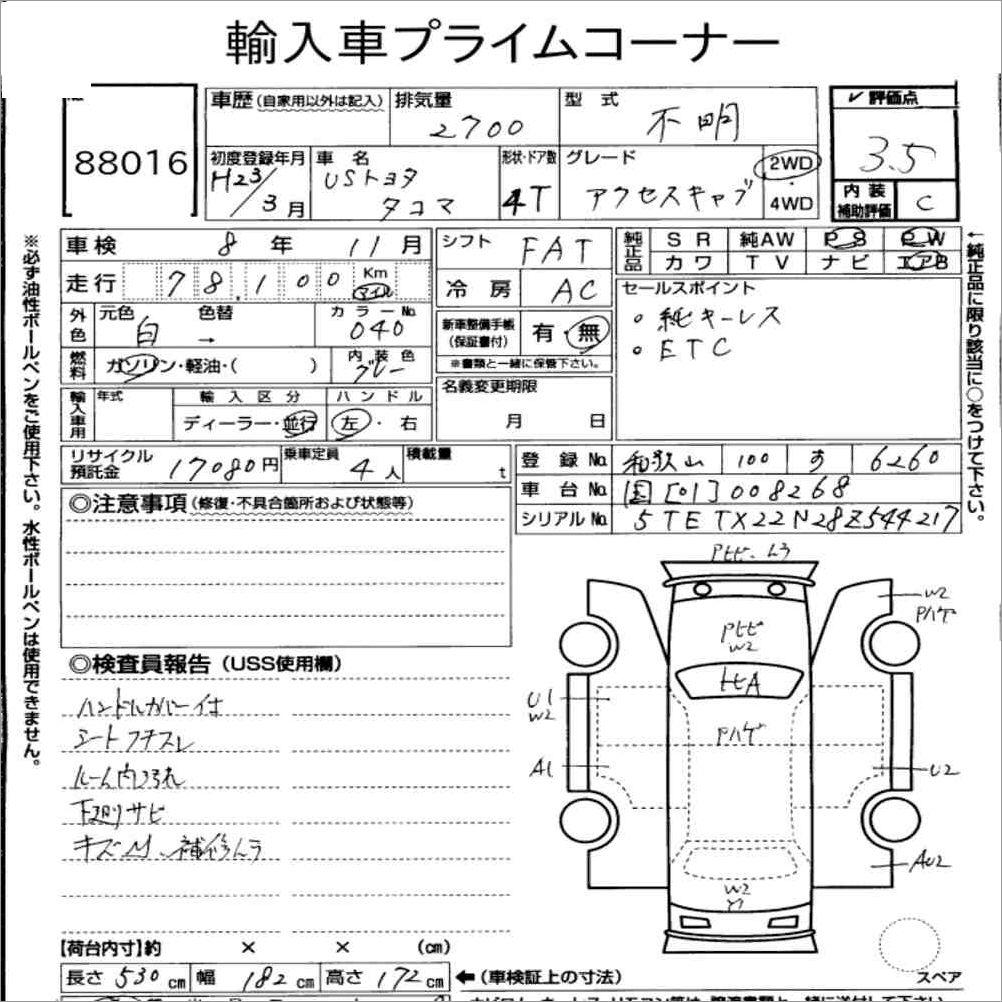 輸入車プライムコーナー
88016
車歴(自家用以外は記入) 排気量 2700 型式 不明
✓評価点 3.5
初度登録年月 H23/3月 車名 USトヨタ タコマ 形状・ドア数 4T グレード アクセスキャブ 2WD・4WD
内装補助評価 C
※必ず油性ボールペンをご使用下さい。水性ボールペンは使用できません。
車検 8年 11月 シフト FAT 純正品 SR 純AW PS PW
カワ TV ナビ エアB
走行 78,100 Km マイル 冷房 AC
セールスポイント
。純キーレス
。ETC
外色 元色 白 色替 → カラーNo. 040
新車整備手帳(保証書付) 有・無
※書類と一緒に保管下さい。
燃料 ガソリン・軽油・( ) 内装色 グレー
名義変更期限 月 日
輸入車用 年式 輸入区分 ディーラー・並行 ハンドル 左・右
←純正品に限り該当に○をつけて下さい。
リサイクル預託金 17080円 乗車定員 4人 積載量 t
登録No. 和歌山 100 す 6260
車台No. 国[01]008268
シリアルNo. 5TETX22N28Z544217
◎注意事項(修復・不具合箇所および状態等)
◎検査員報告(USS使用欄)
ハンドルカバー付
シートフチスレ
ルーム内汚れ
下廻りサビ
キズ凹、補修ムラ
Pヒビ、ムラ
W2
Pハゲ
Pヒビ
W2
トビA
U1
W2
Pハゲ
A1
U2
AU2
W2
【荷台内寸】約 × × (cm)
長さ 530cm 幅 182cm 高さ 172cm ←(車検証上の寸法)
スペア